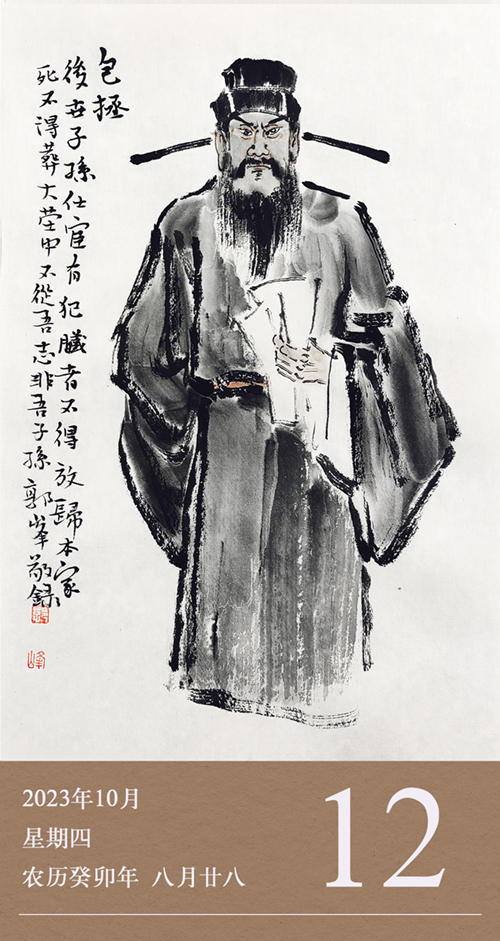 包拯
後世子孫仕宦有犯贓者不得放歸本家
死不得葬大塋中不從吾志非吾子孫郭峰敬錄
峰
2023年10月
星期四
农历癸卯年 八月廿八
12